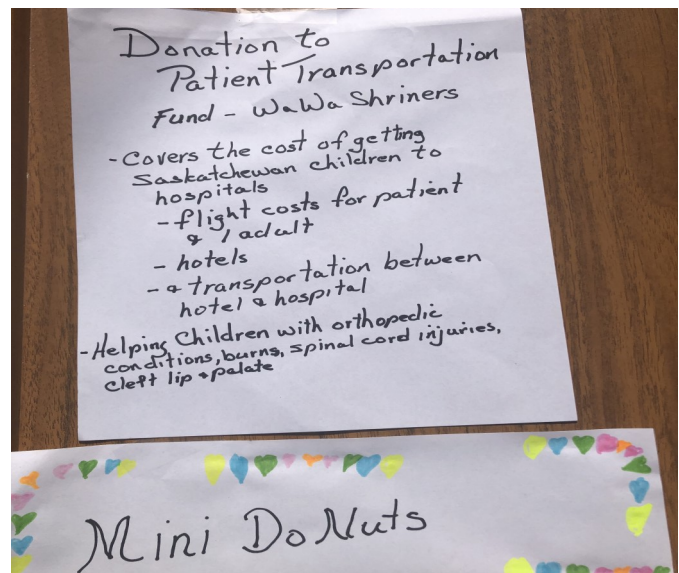 Donation to
Patient Transportation
Fund - WaWa Shriners
- Covers the cost of getting
Saskatchewan children to
hospitals
- flight costs for patient
& 1 adult
- hotels
- & transportation between
hotel & hospital
- Helping Children with orthopedic
conditions, burns, spinal cord injuries,
cleft lip & palate
Mini DoNuts